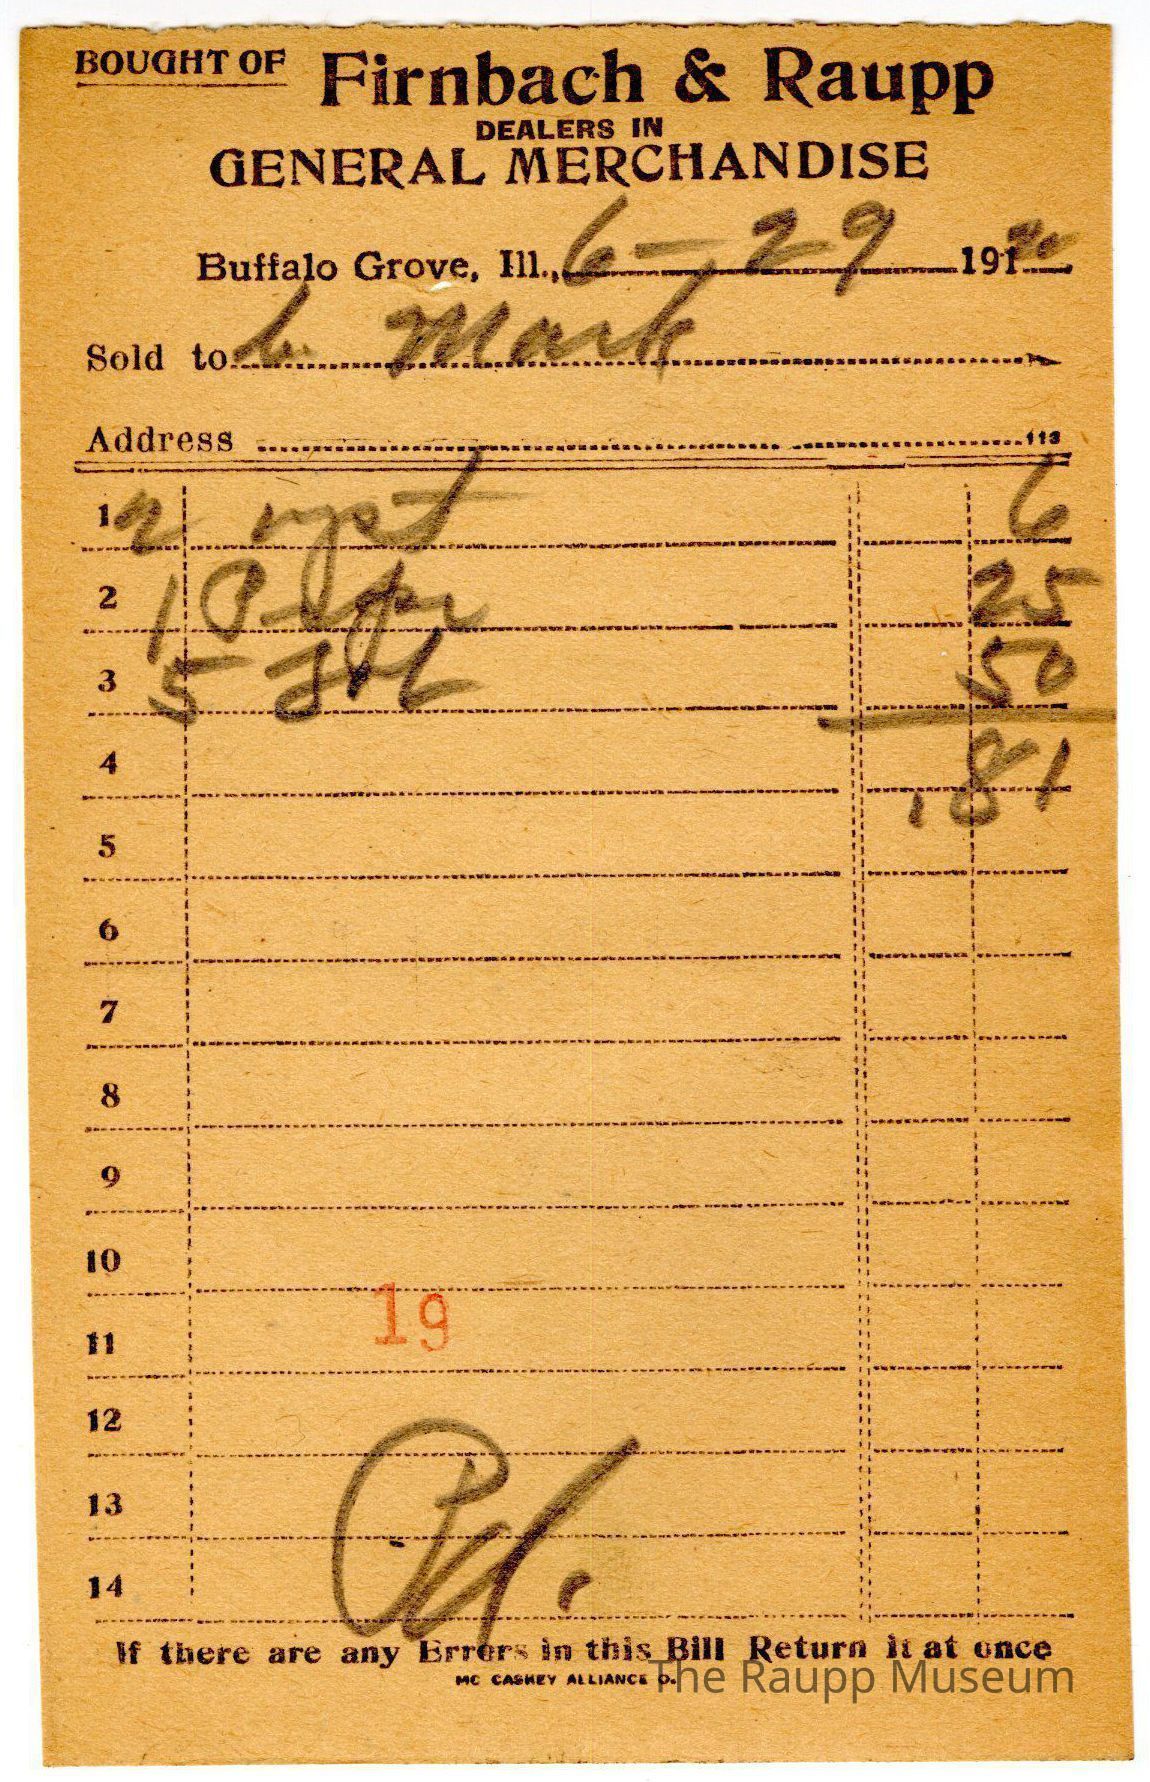 BOUGHT OF Firnbach & Raupp
DEALERS IN
GENERAL MERCHANDISE
Buffalo Grove, Ill., 6-29 191
Sold to Mark
Address 113
1 2 6
2 1 25
3 5 50
4 .81
5
6
7
8
9
10
11 19
12
13
14 Pd.
If there are any Errors in this Bill Return it at once
MC CASKEY ALLIANCE O.
The Raupp Museum